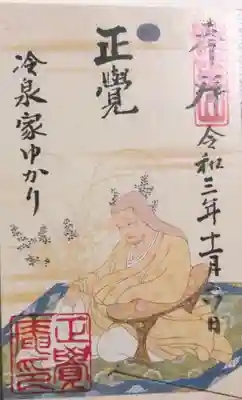 奉拝
令和三年十一月六日
正覺
冷泉家ゆかり
正覺